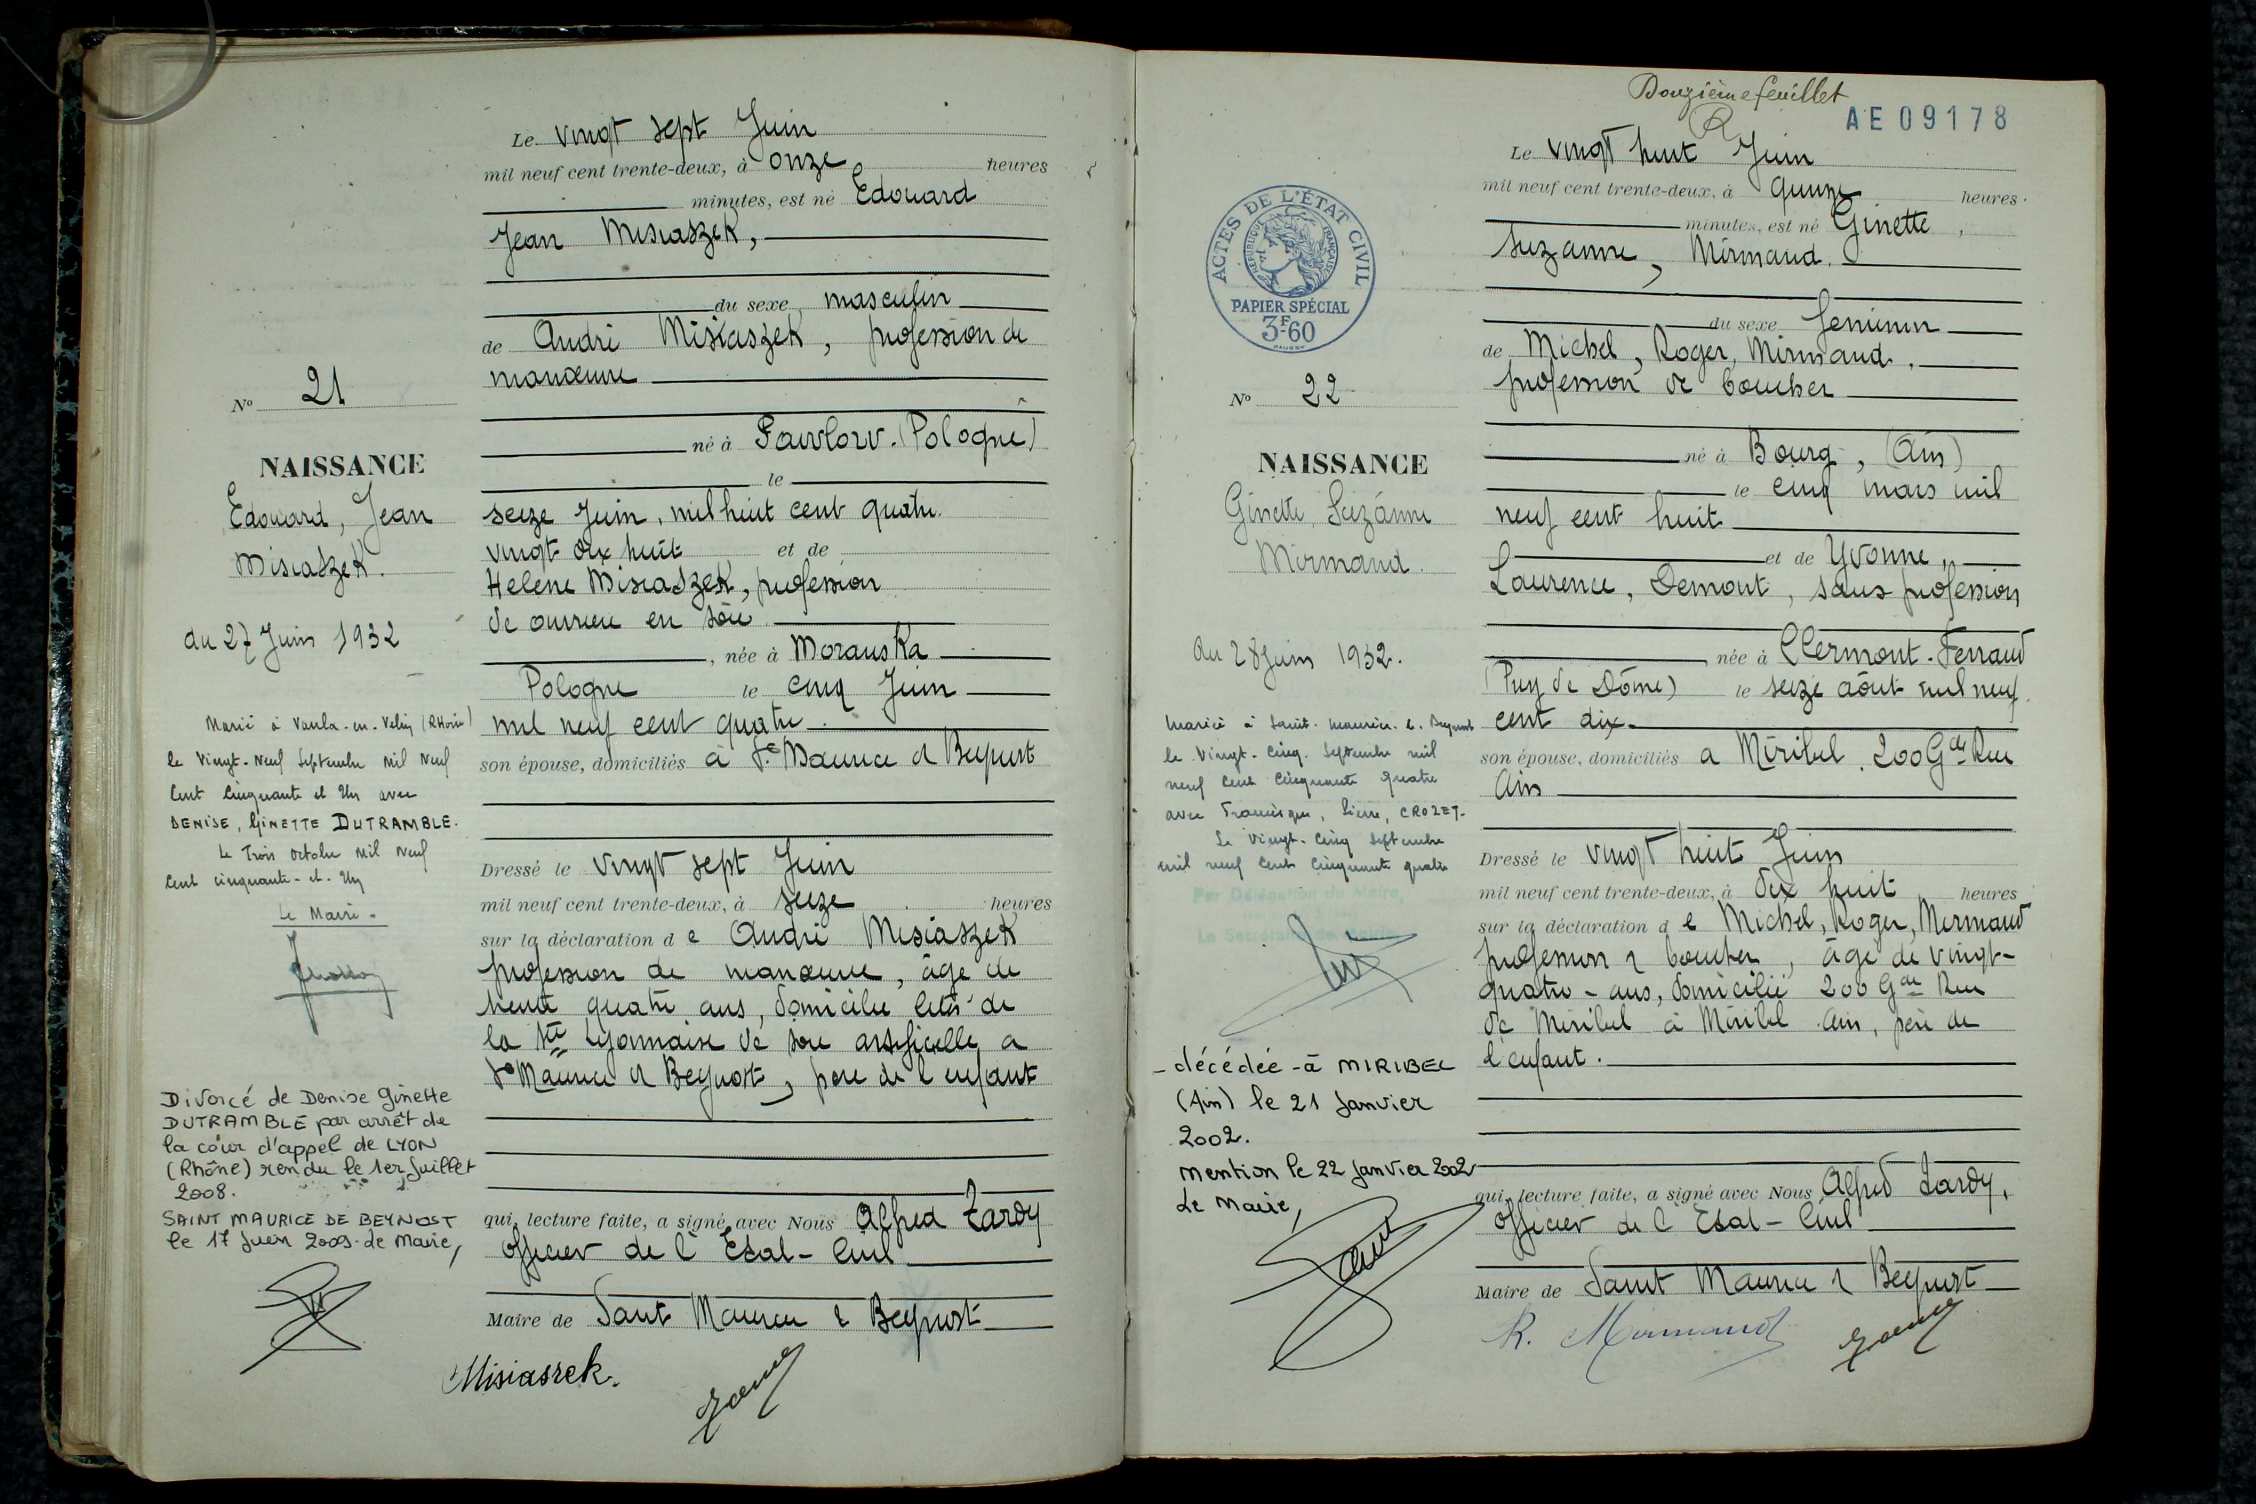 Le vingt sept Juin
mil neuf cent trente-deux, à onze heures
minutes, est né Edouard
Jean Misiaszek,
du sexe masculin
de André Misiaszek, profession de
manœuvre
N° 21
né à Pawlow. (Pologne)
NAISSANCE
le
Edouard, Jean
Misiaszek.
seize Juin, mil huit cent quatre
vingt dix huit et de
Helene Misiaszek, profession
de ouvrière en soie
du 27 Juin 1932
, née à Morauska
Pologne le cinq Juin
mil neuf cent quatre.
son épouse, domiciliés à St Maurice d Beynost
Marié à Vaulx-en-Velin (Rhône)
le Vingt-Neuf Septembre Mil Neuf
Cent Cinquante et Un avec
DENISE, GINETTE DUTRAMBLE.
Le Trois Octobre Mil Neuf
Cent cinquante-et-Un
Le Maire.
Dressé le vingt sept Juin
mil neuf cent trente-deux, à seize heures
sur la déclaration d e André Misiaszek
profession de manœuvre, âge de
trente quatre ans, domicilié cités de
la Sté Lyonnaise de soie artificielle a
St Maurice d Beynost, père de l'enfant
Divorcé de Denise Ginette
DUTRAMBLE par arrêt de
la cour d'appel de LYON
(Rhône) rendu le 1er Juillet
2008.
SAINT MAURICE DE BEYNOST
le 17 Juin 2009. Le Maire,
qui, lecture faite, a signé avec Nous Alfred Tardy
Officier de l'Etat-Civil
Maire de Saint Maurice d Beynost
Misiaszek.
Douzième feuillet
AE 09178
Le vingt huit Juin
mil neuf cent trente-deux, à quinze heures
minutes, est né Ginette,
Suzanne, Mirmand.
ACTES DE L'ÉTAT CIVIL
RÉPUBLIQUE FRANÇAISE
PAPIER SPÉCIAL
3F60
du sexe féminin
de Michel, Roger, Mirmand,
profession de boucher
N° 22
né à Bourg, (Ain)
le cinq mars mil
neuf cent huit
NAISSANCE
Ginette, Suzanne
Mirmand.
et de Yvonne,
Laurence, Demont, sans profession
née à Clermont-Ferrand
(Puy de Dôme) le seize août mil neuf
cent dix.
son épouse, domiciliés a Miribel. 200 Gde Rue
Ain
du 28 Juin 1932.
Mariée à Saint-Maurice-d-Beynost
le Vingt-Cinq Septembre mil
neuf Cent Cinquante quatre
avec Francisque, Pierre, CROZET.
Le Vingt-Cinq Septembre
mil neuf Cent Cinquante quatre
Par Délégation du Maire,
Le Secrétaire de Mairie
Dressé le vingt huit Juin
mil neuf cent trente-deux, à dix huit heures
sur la déclaration d e Michel, Roger, Mirmand
profession d boucher, âgé de vingt-
quatre-ans, domicilié 200 Gde Rue
de Miribel à Miribel Ain, père de
l'enfant.
- décédée - à MIRIBEL
(Ain) le 21 Janvier
2002.
mention le 22 Janvier 2002
Le Maire,
qui, lecture faite, a signé avec Nous Alfred Tardy,
officier de l'Etat-Civil
Maire de Saint Maurice d Beynost
R. Mirmand